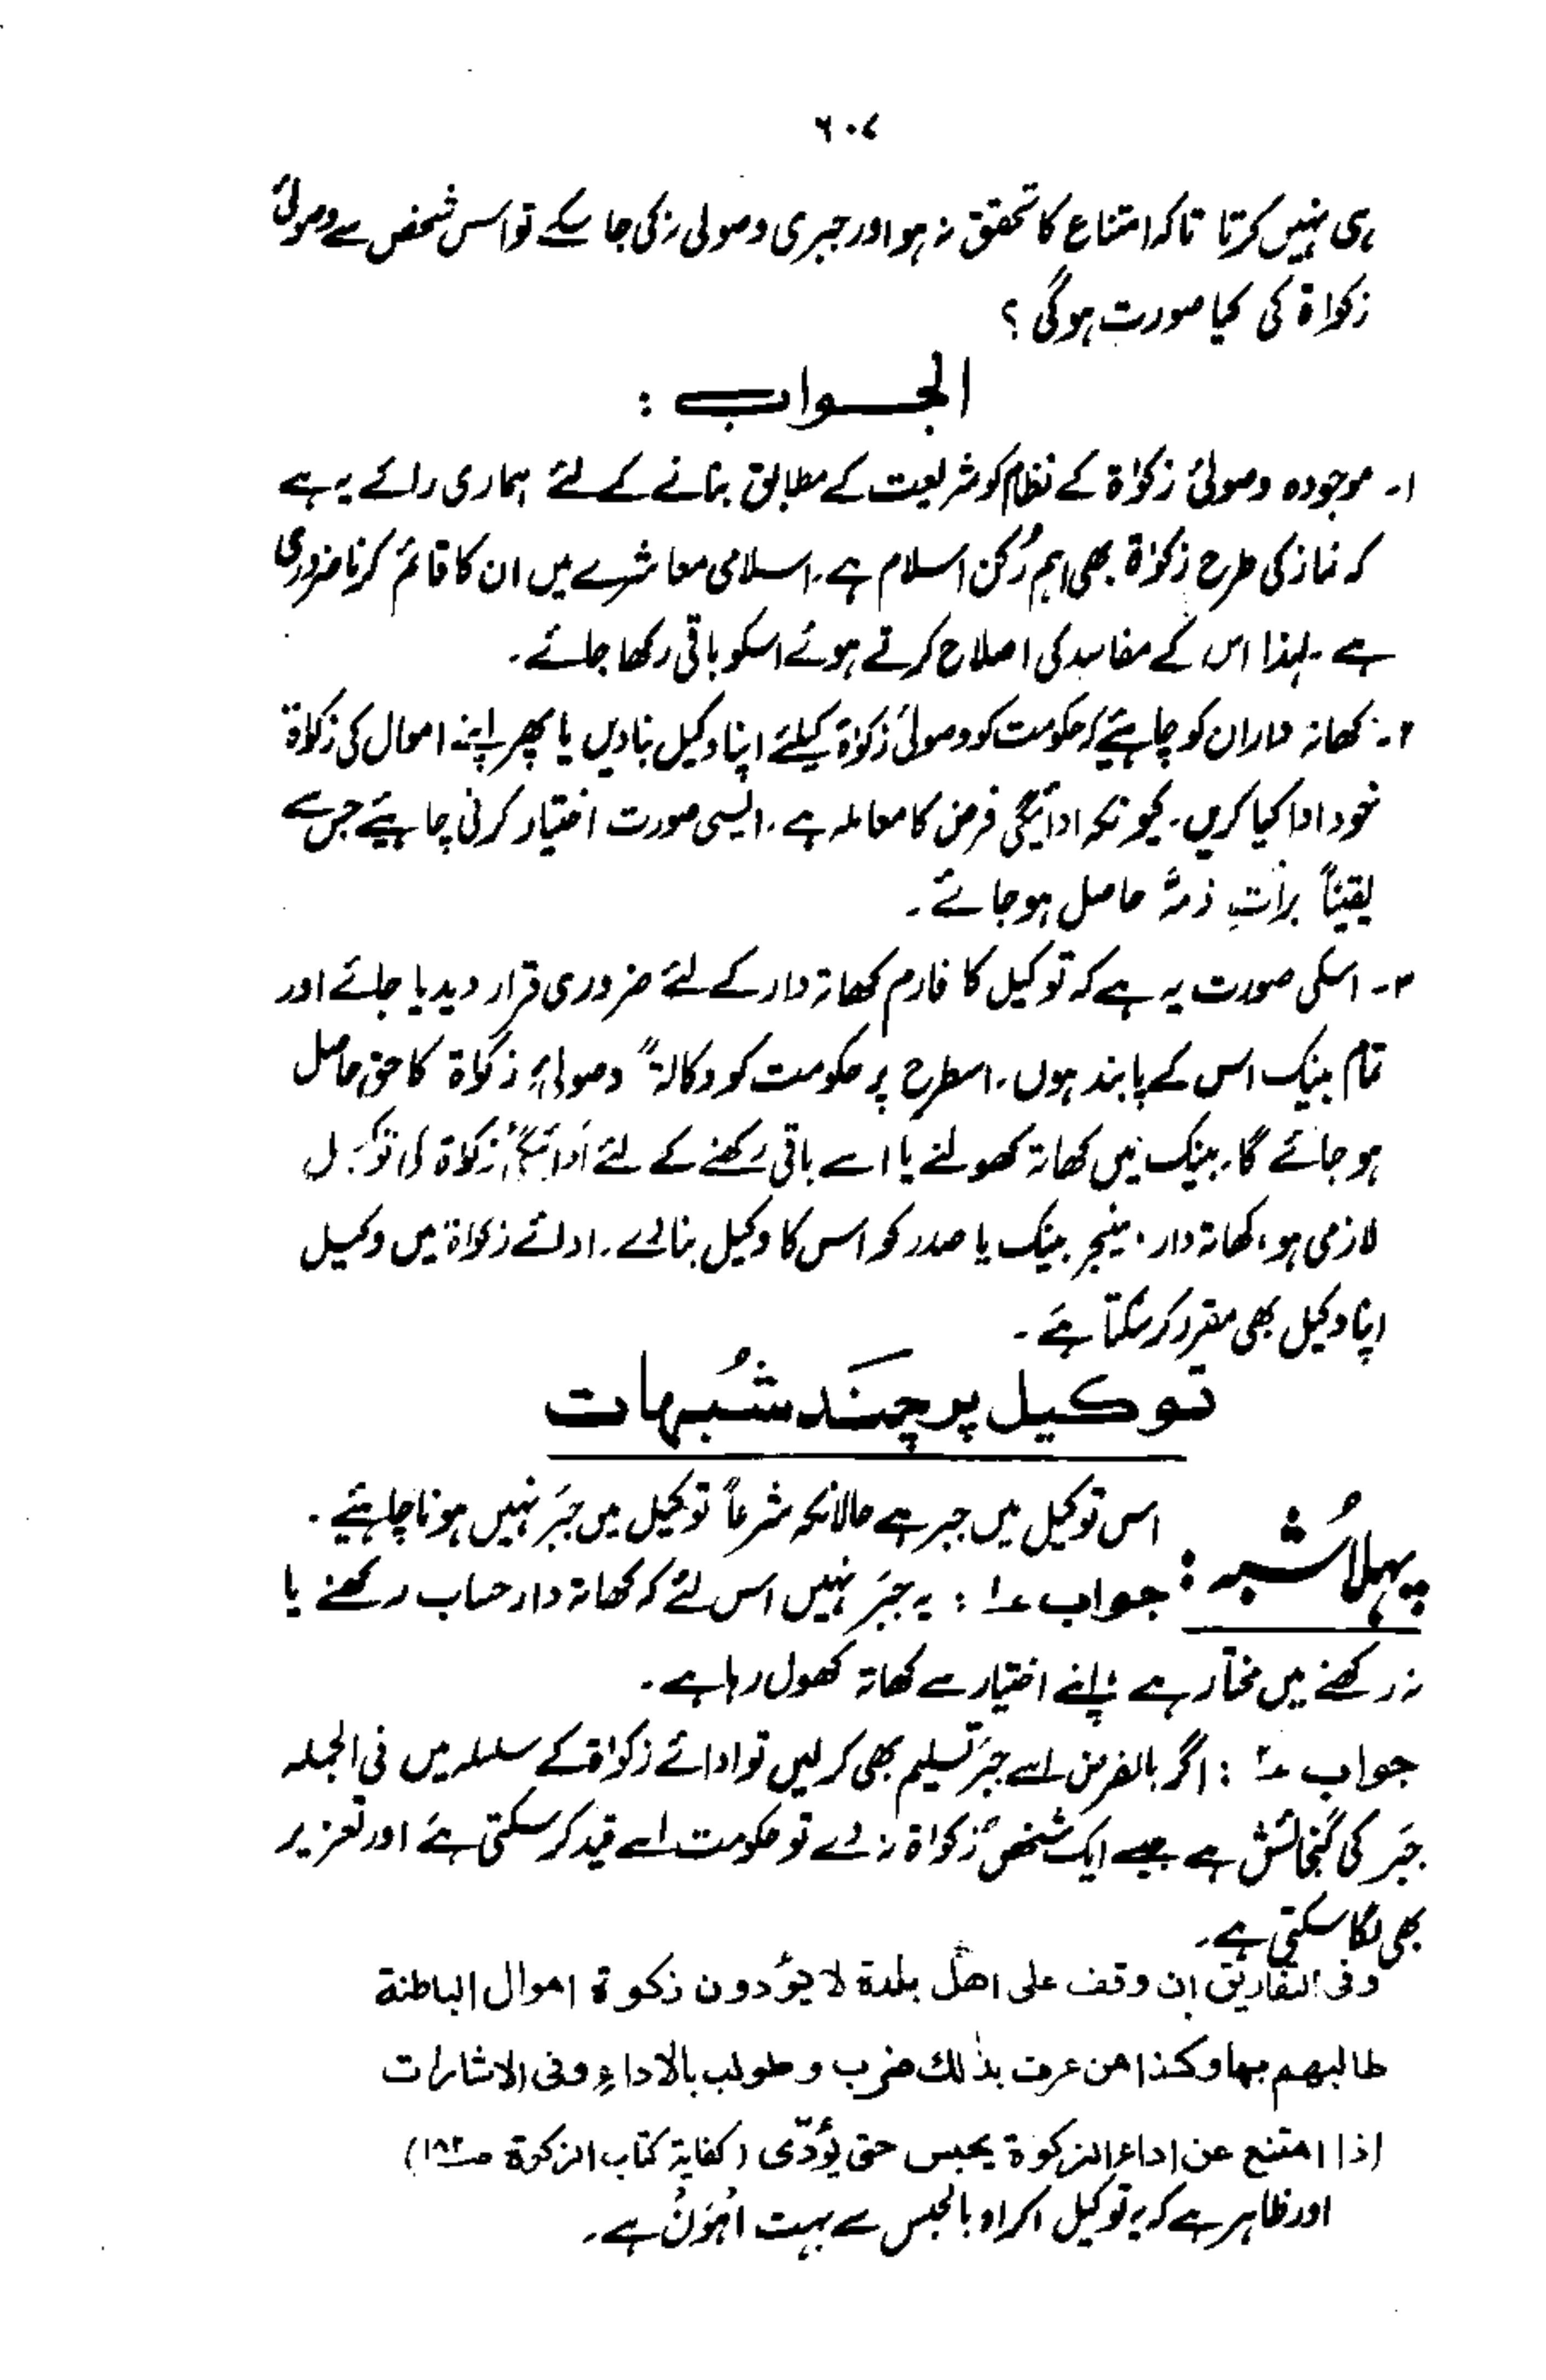 ۶۰۷
ہی نہیں کرتا تاکہ امتناع کا تحقق نہ ہو اور جبری وصولی نہ کی جا سکے تو اس شخص سے وصولیٔ
زکواۃ کی کیا صورت ہوگی ؟
الجواب :
۱۔ موجودہ وصولیٔ زکوٰۃ کے نظام کو شریعت کے مطابق بنانے کے لئے ہماری رائے یہ ہے
کہ نماز کی طرح زکوٰۃ بھی اہم رُکن اسلام ہے۔ اسلامی معاشرے میں ان کا قائم کرنا ضروری
ہے ۔ لہٰذا اس کے مفاسد کی اصلاح کرتے ہوئے اسکو باقی رکھا جائے ۔
۲۔ کھاتہ داران کو چاہیئے کہ حکومت کو وصولیٔ زکوٰۃ کیلئے اپنا وکیل بنادیں یا پھر اپنے اموال کی زکوٰۃ
خود ادا کیا کریں ۔ کیونکہ ادائیگی فرض کا معاملہ ہے ، ایسی صورت اختیار کرنی چاہیئے جس سے
یقیناً برأتِ ذمّہ حاصل ہو جائے ۔
۳۔ اسکی صورت یہ ہے کہ توکیل کا فارم کھاتہ دار کے لئے ضروری قرار دیدیا جائے اور
تمام بینک اس کے پابند ہوں ۔ اسطرح پر حکومت کو وکالۃً وصولیٔ زکواۃ کا حق حاصل
ہو جائے گا ۔ بینک میں کھاتہ کھولنے یا اسے باقی رکھنے کے لئے ادائیگیٔ زکواۃ کی توکیل
لازمی ہو ، کھاتہ دار ، منیجر بینک یا صدر کو اس کا وکیل بنا لے ۔ ادائے زکواۃ میں وکیل
اپنا وکیل بھی مقرر کر سکتا ہے ۔
توکیل پر چند شُبہات
پہلا شُبہ : اس توکیل میں جبر ہے حالانکہ شرعاً توکیل میں جبَر نہیں ہونا چاہیئے ۔
جواب ۱ : یہ جبَر نہیں اس لئے کہ کھاتہ دار حساب رکھنے یا
نہ رکھنے میں مختار ہے ، اپنے اختیار سے کھاتہ کھول رہا ہے ۔
جواب ۲ : اگر بالفرض اسے جبَر تسلیم بھی کر لیں تو ادائے زکواۃ کے سلسلہ میں فی الجملہ
جبَر کی گنجائش ہے جیسے ایک شخص زکواۃ نہ دے تو حکومت اسے قید کر سکتی ہے اور تعزیر
بھی لگا سکتی ہے۔
وفی التفاریق ان وقف علی اھل بلدۃ لا یؤدون زکوۃ اموال الباطنۃ
طالبھم بھا وکذا من عرف بذٰلک ضرب وطولب بالاداءِ وفی الاشارات
اذا امتنع عن اداء الزکوۃ یحبس حتی یؤدّی (کفایۃ کتاب الزکوۃ صـ۱۸۲)
اور ظاہر ہے کہ یہ توکیل اکراہ بالحبس سے بہت اہْوَنْ ہے۔